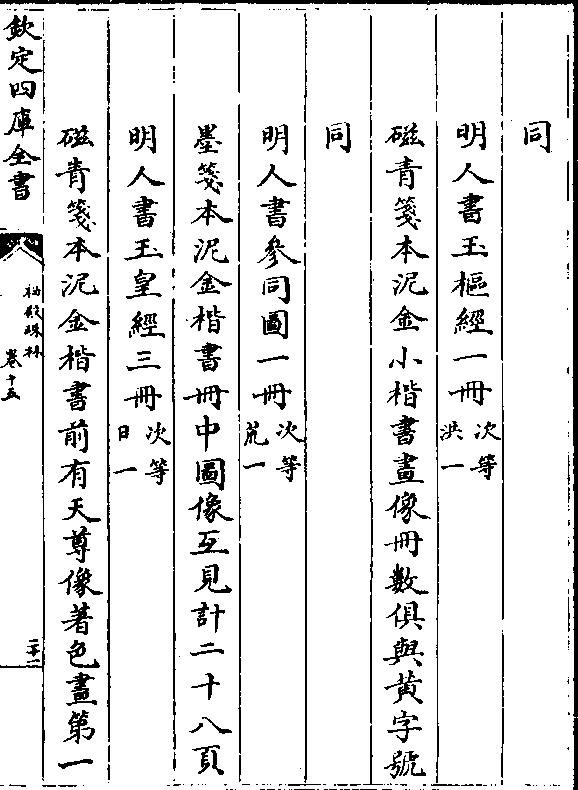 同
明人書玉樞經一冊次等洪一
磁青箋本泥金小楷書畫像冊數俱與黃字號
同
明人書參同圖一冊次等荒一
墨箋本泥金楷書冊中圖像互見計二十八頁
明人書玉皇經三冊次等日一
磁青箋本泥金楷書前有天尊像著色畫第一
欽定四庫全書
秘殿珠林
卷十五
二十一